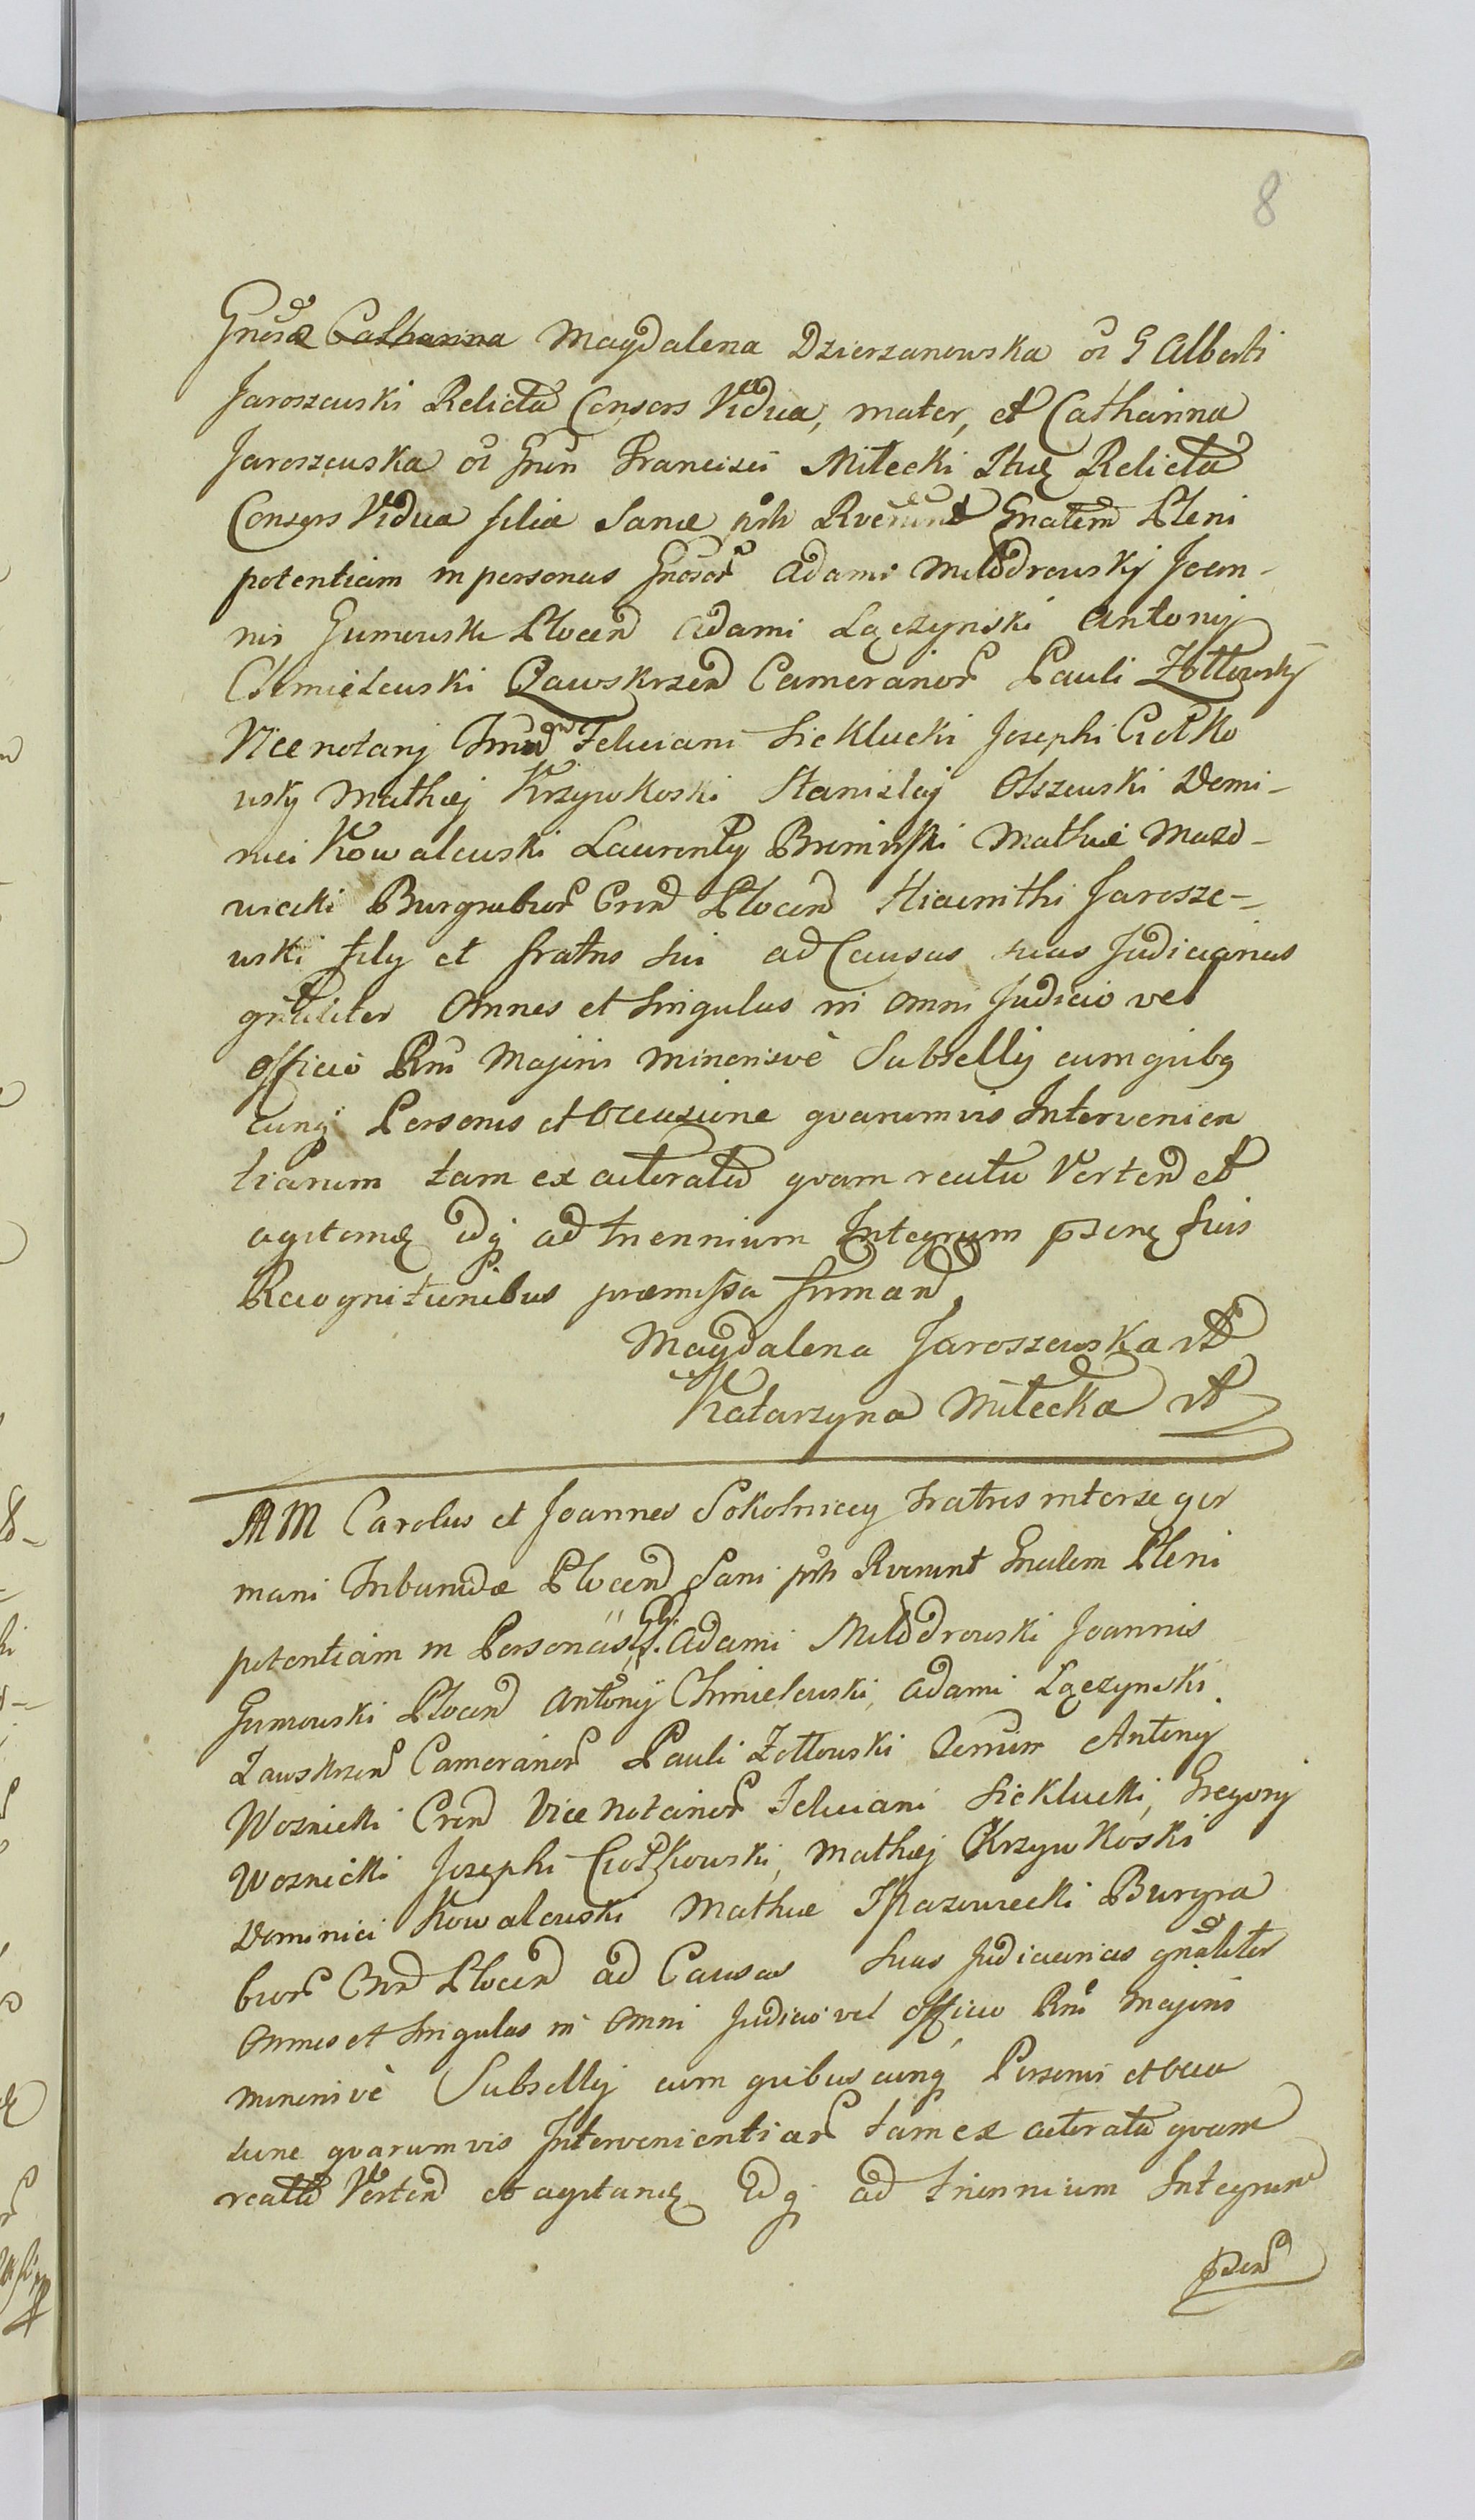 8
Gnosae Catharina Magdalena Dzierzanowska ol G Alberti
Jaroszewski Relicta Consors Vidua, mater, et Catharina
Jaroszewska ol Gnri Francisci Miłecki Relicta
Consors Vidua filia Sanae prth Rverunt Gnalem Pleni
potentiam in personas Gnosor Adami Młodzrowskj Joan-
nis Gumowski Plocen Adami Łączynski Antonij
Chmielewski Zawskrzen Cameranior Pauli Żołtowskij
Vice notarij Feliciani Sieklucki Josephi Ciołko
wskj Mathiej Krzywkoski Stanislaj Olszewski Domi-
nici Kowalewski Laurentij Bromirski Mathiae Mazo-
wiecki Burgrabior Cren Plocen Hiacinthi Jarosze-
wski filij et fratris sui ad Causas suas Judiciarias
gnaliter Omnes et Singulas in omni Judicio vel
officio Rni Majoris minorisvè Subsellij cum quibq
cunq Personis et occasione qvarumvis Intervenien
tiarum tam ex actoratu qvam reatu Verten et
agitan idq ad triennium Integrum suis
Recognitionibus praemissa firman
Magdalena Jaroszewska
Katarzyna Miłecka
MM Carolus et Joannes Sokolniccy Fratres inter se ger
mani Tribunidae Plocen Sani prth Rverunt Gnalem Pleni
potentiam in Personas Adami Młodzrowski Joannis
Gumowski Plocen Antonij Chmielewski, Adami Łączynski
Zawskrzen Cameranior Pauli Żołtowski Antonij
Woznicki Cren Vice notarior Feliciani Sieklucki, Gregorij
Woznicki Josephi Ciołkowski, Mathiej Krzywkoski
Dominici Kowalewski Mathiae Mazowiecki Burgra
bior Cren Plocen ad Causas Suas Judiciarias gnaliter
Omnes et Singulas in Omni Judicio vel officio Rni Majoris
minorisvè Subsellij cum quibus cunq Personis et occa
sione qvarumvis Intervenientiar tam ex actoratu qvam
reatu Verten et agitan idq ad triennium Integrum